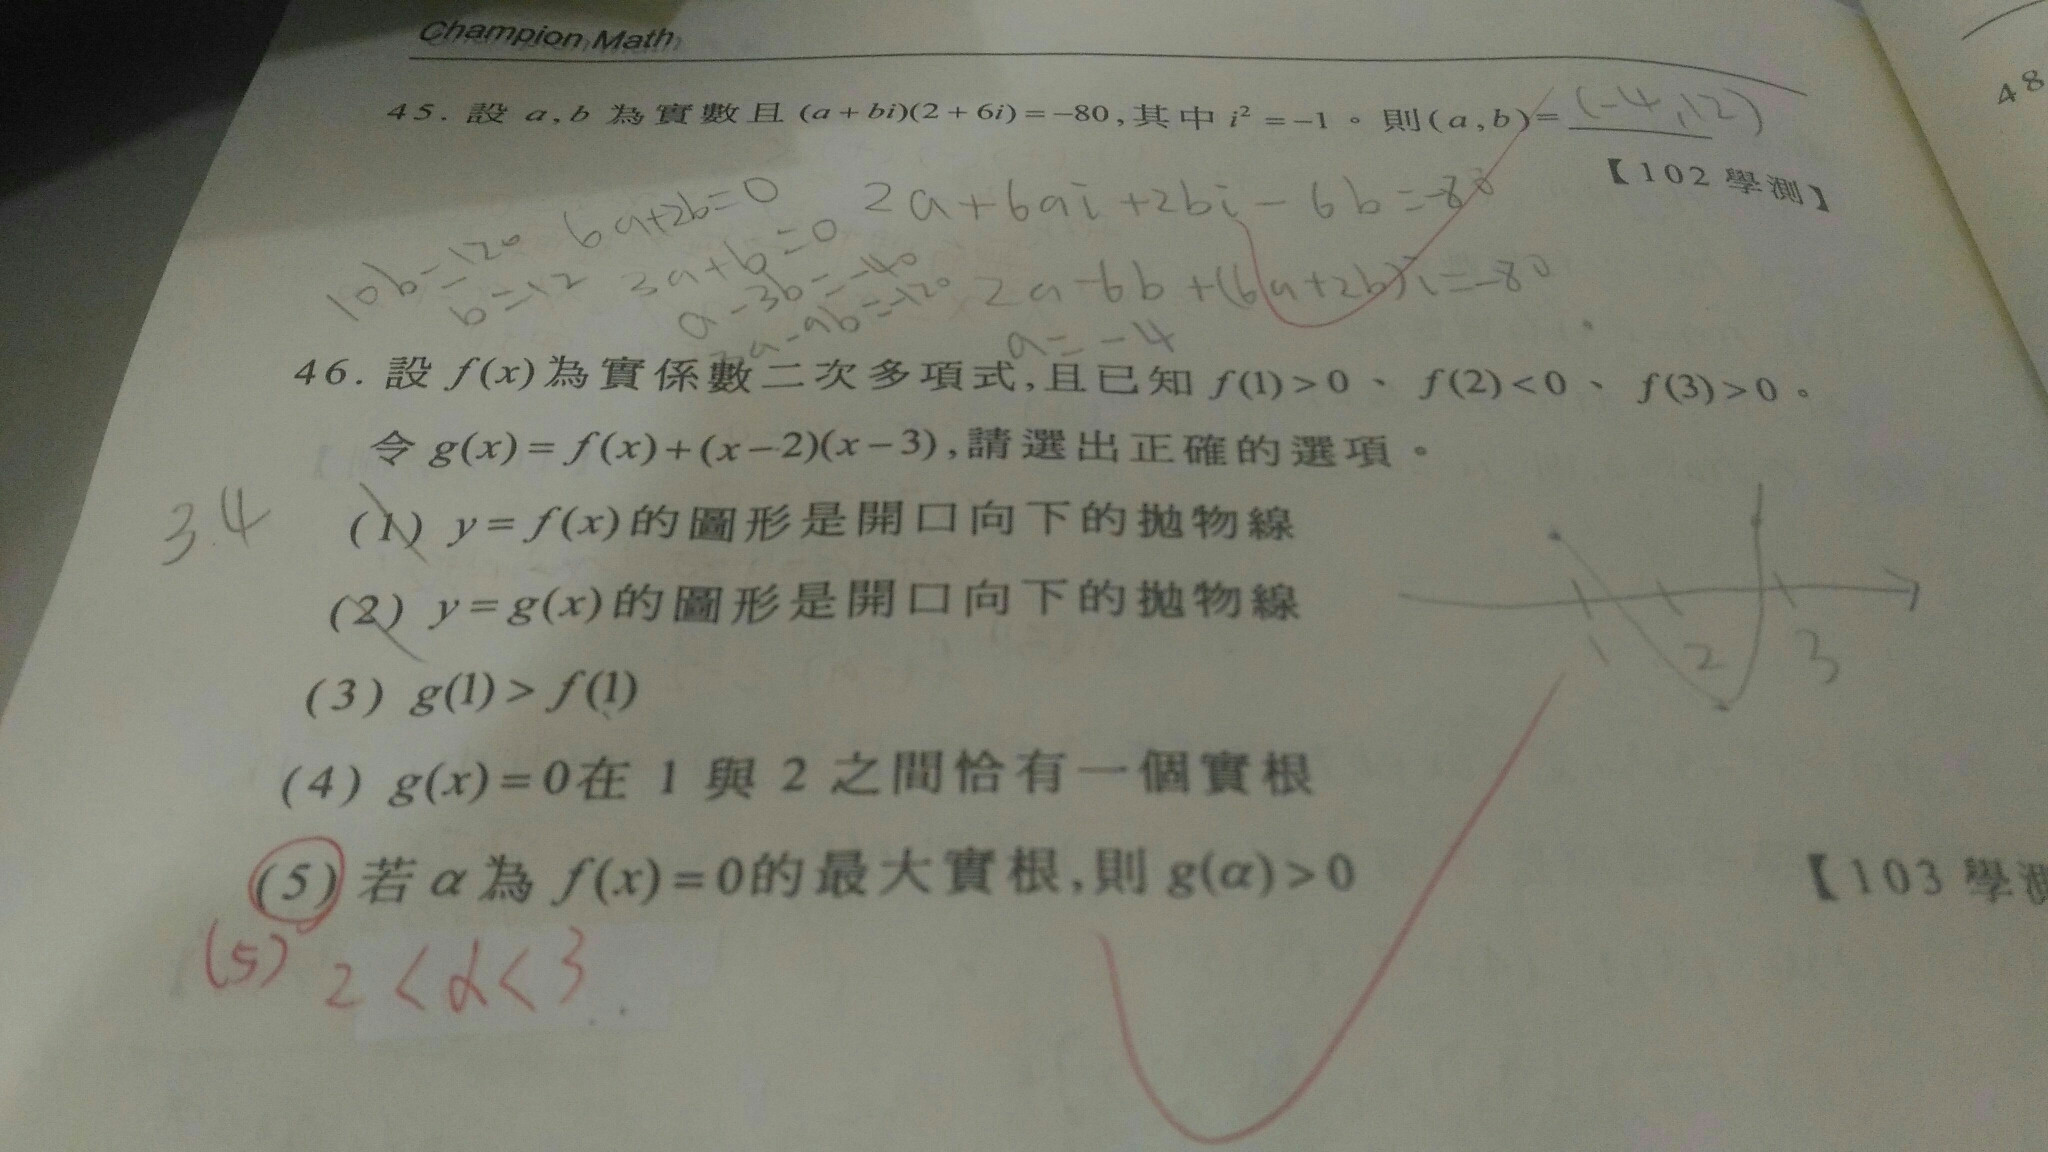 Champion Math
48
45. 設 a,b 為實數且 (a+bi)(2+6i)=-80,其中 i²=-1。則(a,b)= (-4,12)
【102 學測】
6a+2b=0
2a+6ai+2bi-6b=-80
10b=120
3a+b=0
b=12
a-3b=-40
2a-6b+(6a+2b)i=-80
3a-9b=-120
a=-4
46. 設 f(x)為實係數二次多項式,且已知 f(1)>0、f(2)<0、f(3)>0。
令 g(x)=f(x)+(x-2)(x-3),請選出正確的選項。
34
(1) y=f(x)的圖形是開口向下的拋物線
(2) y=g(x)的圖形是開口向下的拋物線
1 2 3
(3) g(1)>f(1)
(4) g(x)=0在 1 與 2 之間恰有一個實根
(5) 若 α 為 f(x)=0的最大實根,則 g(α)>0
【103 學測
(5) 2<α<3